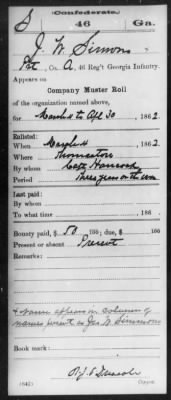 Confederate.
S 46 Ga.
J. W. Simons
Pvt., Co. A, 46 Reg't Georgia Infantry.
Appears on
Company Muster Roll
of the organization named above,
for March 4 to Apl 30, 1862
Enlisted:
When March 4, 1862
Where Thomaston
By whom Capt
Period Three years or the war
Last paid:
By whom
To what time 186
Bounty paid, $ 50 /100; due $ /100
Present or absent Present
Remarks:
name appears in column of
names present as Jas W Simmons
Book mark:
(642) Copyist.